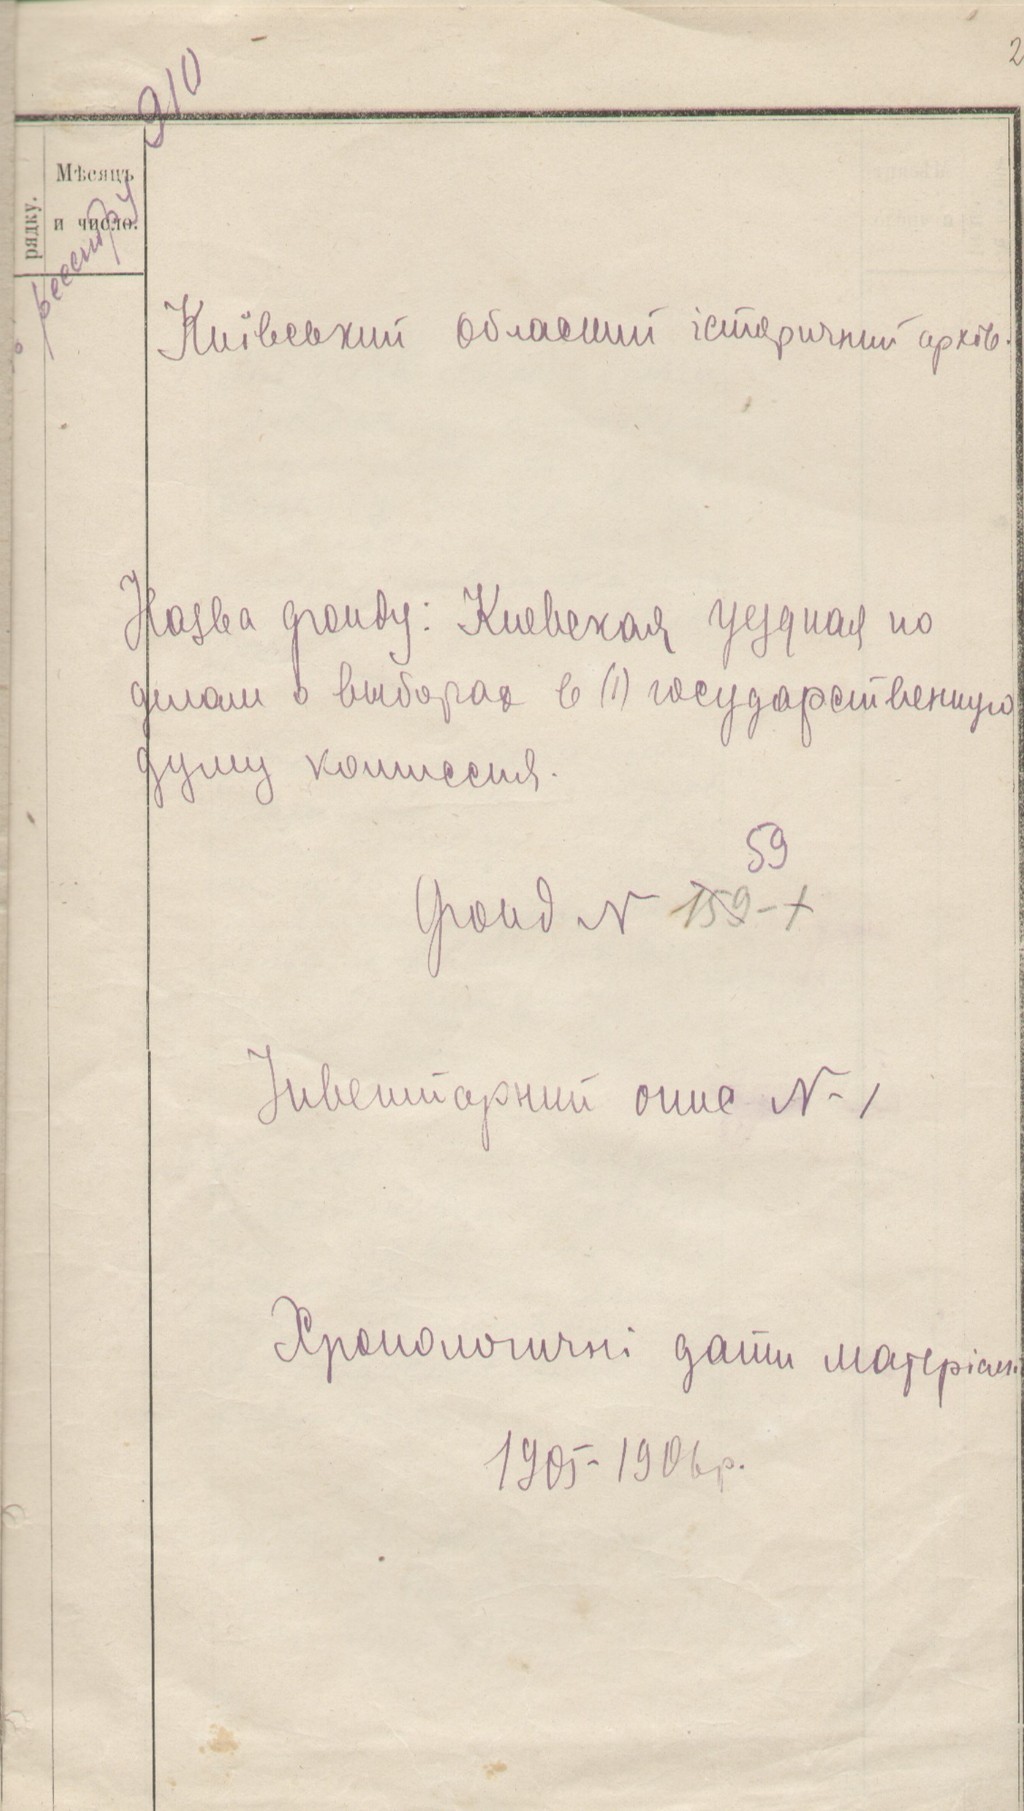 2
910
по реестру
рядку.
Мѣсяцъ
и число.
Київський обласний історичний архів.
Назва фонду: Киевская уездная по
делам о выборах в (I) государственную
думу комиссия.
59
Фонд N 159-
Інвентарний опис N-1
Хронологичні дати матеріалів
1905-1906 р.